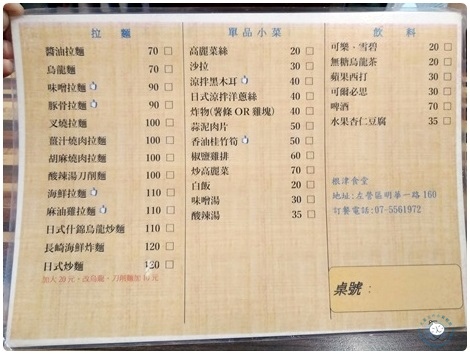 拉 麵
醬油拉麵 70 □
烏龍麵 70 □
味噌拉麵 90 □
豚骨拉麵 90 □
叉燒拉麵 100 □
薑汁燒肉拉麵 100 □
胡麻燒肉拉麵 100 □
酸辣湯刀削麵 100 □
海鮮拉麵 110 □
麻油雞拉麵 110 □
日式什錦烏龍炒麵 110 □
長崎海鮮炸麵 120 □
日式炒麵 120 □
加大 20 元，改烏龍、刀削麵加 10 元
單品小菜
高麗菜絲 20 □
沙拉 30 □
涼拌黑木耳 40 □
日式涼拌洋蔥絲 40 □
炸物(薯條 OR 雞塊) 40 □
蒜泥肉片 50 □
香油桂竹筍 50 □
椒鹽雞排 60 □
炒高麗菜 70 □
白飯 20 □
味噌湯 30 □
酸辣湯 35 □
飲 料
可樂．雪碧 20 □
無糖烏龍茶 20 □
蘋果西打 30 □
可爾必思 30 □
啤酒 70 □
水果杏仁豆腐 35 □
根津食堂
地址:左營區明華一路 160
訂餐電話:07-5561972
桌號：